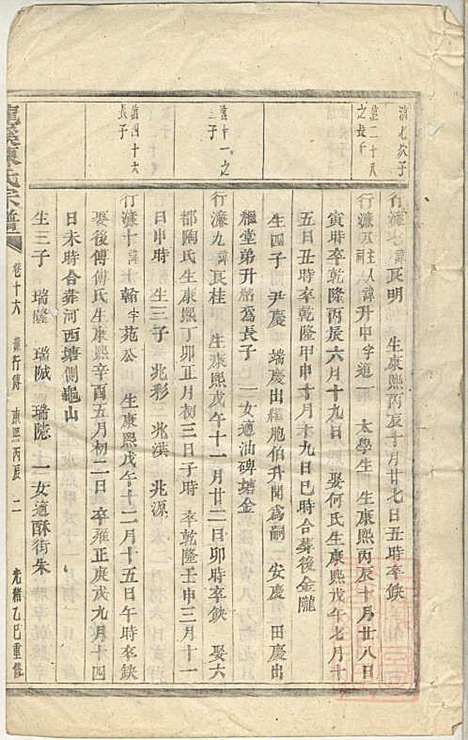 濂七次子
行濂七諱辰明 生康熙丙辰十月廿七日丑時卒缺
濂二十八之長子
行濂五主人祠諱升中字道一 太學生 生康熙丙辰十月廿八日
寅時卒乾隆丙辰六月十九日 娶何氏生康熙戊午七月十
五日丑時卒乾隆甲申十月十九日巳時合葬後金隴
生四子 尹慶 瑞慶出繼胞伯升聞爲嗣 安慶 田慶出
繼堂弟升階爲長子 一女適油碑塘金
濂十一之三子
行濂九諱辰桂 生康熙戊午十一月廿二日卯時卒缺 娶六
都陶氏生康熙丁卯正月初三日子時 卒乾隆壬申三月十一
日申時 生三子 兆彩 兆洪 兆源
濂四十六長子
行濂十諱翰字苑公 生康熙戊午十二月十五日午時卒缺
娶後傅傅氏生康熙辛酉五月初二日卒雍正庚戌九月十四
日未時合葬河西塘側龜山
生三子 瑞隆 瑞陞 一女適酥街朱
陳氏宗譜
卷十六 諱行傳 康熙丙辰 二 光緒乙巳重修